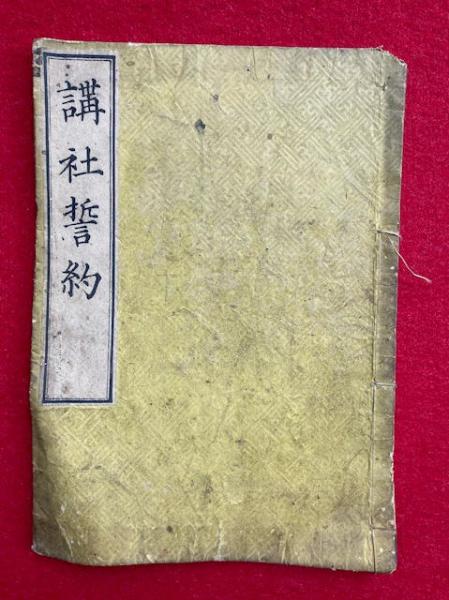 講社誓約